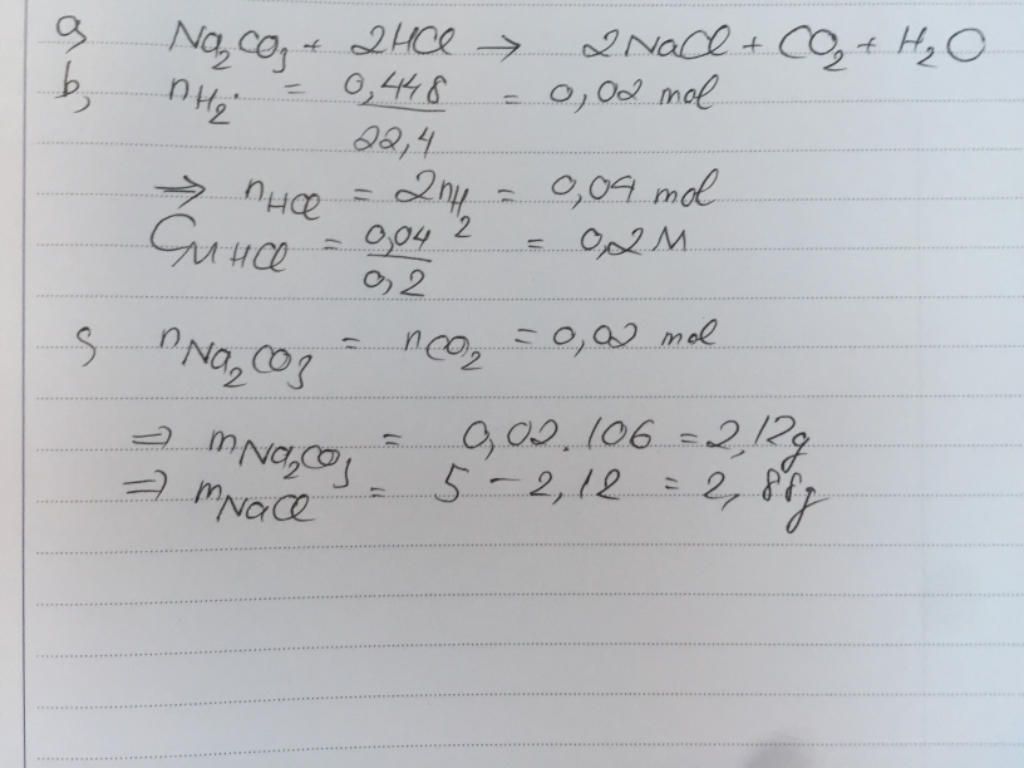 a, Na2CO3 + 2HCl → 2NaCl + CO2 + H2O
b, nH2 = 0,448/22,4 = 0,02 mol
⇒ nHCl = 2nH2 = 0,04 mol
CM HCl = 0,04/0,2 = 0,2 M
c, nNa2CO3 = nCO2 = 0,02 mol
⇒ mNa2CO3 = 0,02.106 = 2,12g
⇒ mNaCl = 5 - 2,12 = 2,88g